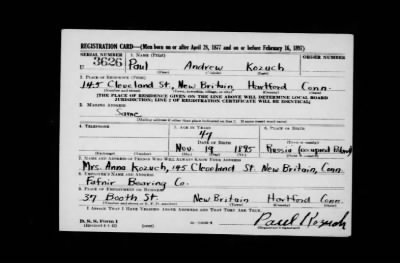 REGISTRATION CARD—(Men born on or after April 28, 1877 and on or before February 16, 1897)
SERIAL NUMBER 1. NAME (Print) ORDER NUMBER
U 3626 Paul Andrew Kozuch
(First) (Middle) (Last)
2. PLACE OF RESIDENCE (Print)
145 Cleveland St., New Britain Hartford Conn.
(Number and street) (Town, township, village, or city) (County) (State)
[THE PLACE OF RESIDENCE GIVEN ON THE LINE ABOVE WILL DETERMINE LOCAL BOARD
JURISDICTION; LINE 2 OF REGISTRATION CERTIFICATE WILL BE IDENTICAL]
3. MAILING ADDRESS
Same
[Mailing address if other than place indicated on line 2. If same insert word same]
4. TELEPHONE 5. AGE IN YEARS 6. PLACE OF BIRTH
47
DATE OF BIRTH
Nov. 19 1895 Russia (occupied Poland)
(Exchange) (Number) (Mo.) (Day) (Yr.) (State or country)
7. NAME AND ADDRESS OF PERSON WHO WILL ALWAYS KNOW YOUR ADDRESS
Mrs. Anna Kozuch, 145 Cleveland St. New Britain, Conn.
8. EMPLOYER'S NAME AND ADDRESS
Fafnir Bearing Co.
9. PLACE OF EMPLOYMENT OR BUSINESS
37 Booth St. New Britain Hartford Conn.
(Number and street or R. F. D. number) (Town) (County) (State)
I AFFIRM THAT I HAVE VERIFIED ABOVE ANSWERS AND THAT THEY ARE TRUE.
D. S. S. Form 1
Paul Kozuch